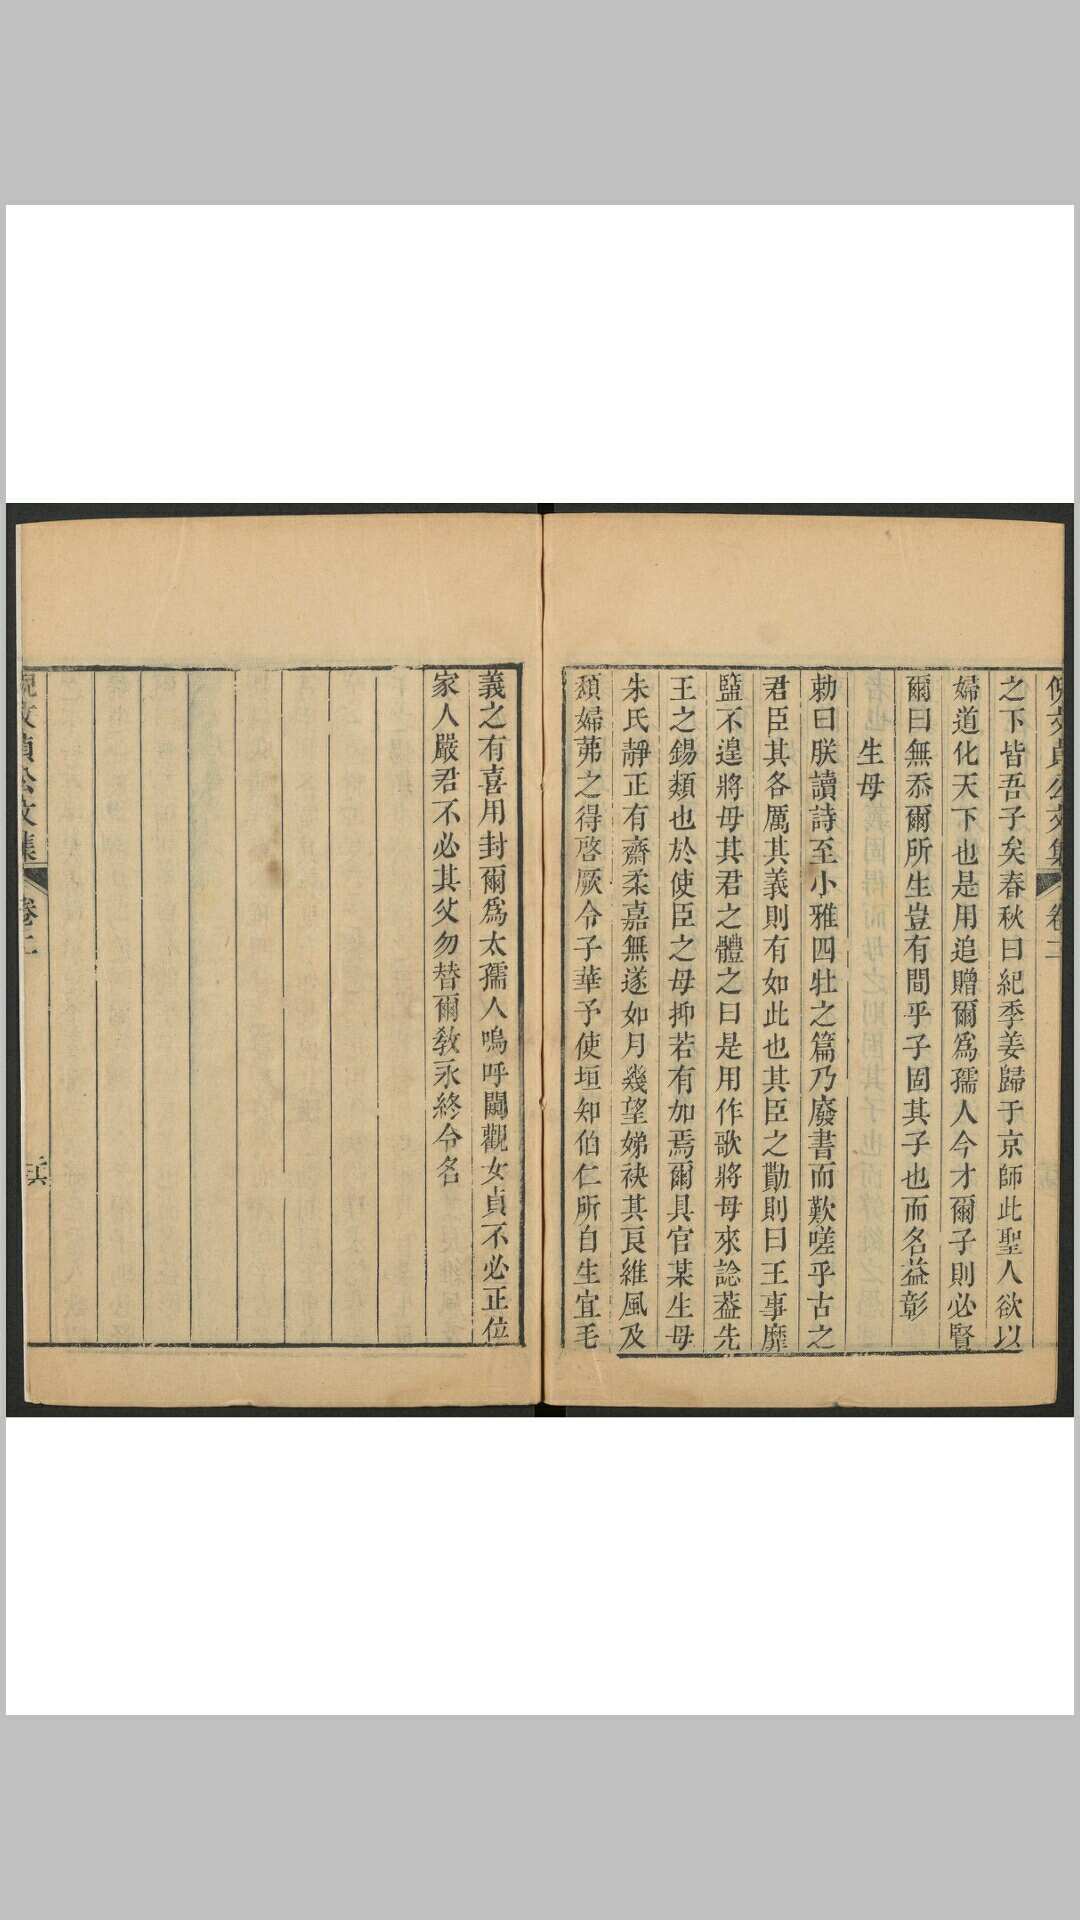 倪文貞公文集 卷二
之下皆吾子矣春秋曰紀季姜歸于京師此聖人欲以
婦道化天下也是用追贈爾爲孺人今才爾子則必賢
爾曰無忝爾所生豈有間乎子固其子也而名益彰
生母
勅曰朕讀詩至小雅四牡之篇乃廢書而歎嗟乎古之
君臣其各厲其義則有如此也其臣之勤則曰王事靡
盬不遑將母其君之體之曰是用作歌將母來諗葢先
王之錫類也於使臣之母抑若有加焉爾具官某生母
朱氏靜正有齋柔嘉無遂如月幾望娣袂其良維風及
頹婦茀之得啓厥令子華予使垣知伯仁所自生宜毛
義之有喜用封爾爲太孺人嗚呼闚觀女貞不必正位
家人嚴君不必其父勿替爾敎永終令名
倪文貞公文集 卷二